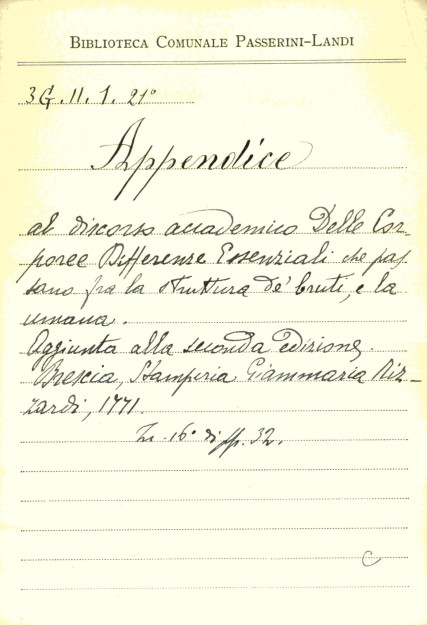 BIBLIOTECA COMUNALE PASSERINI-LANDI
3G.II.1.21°
Appendice
al discorso accademico Delle Cor-
poree Differenze Essenziali che pas
sano fra la struttura de' bruti, e la
umana.
Aggiunta alla seconda edizione.
Brescia, Stamperia Giammaria Riz-
zardi, 1771.
In 16° di pp. 32.
C